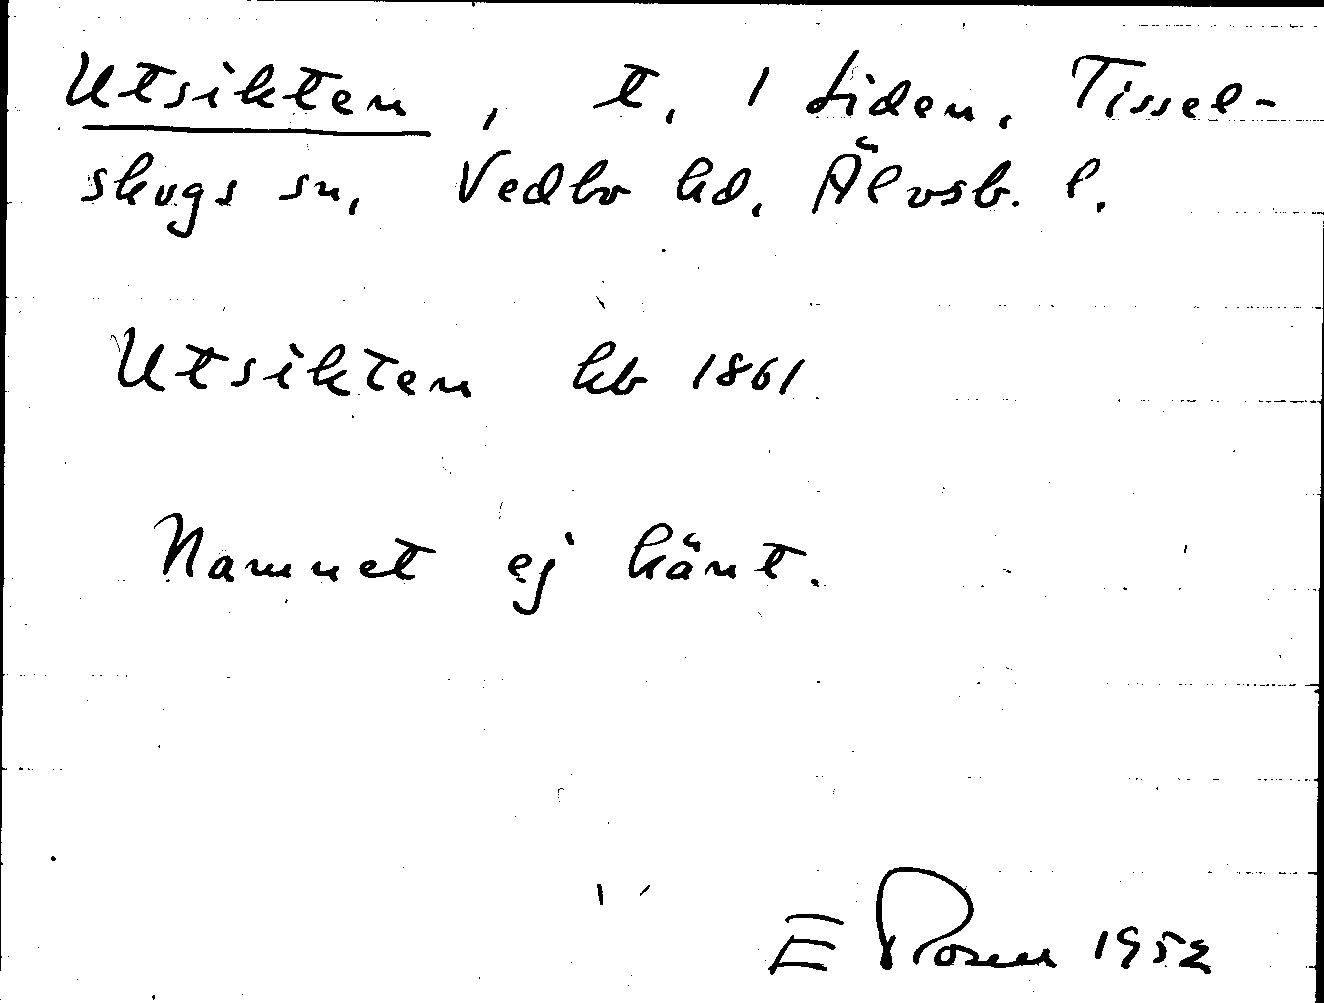 Utsikten, t. 1 Liden, Tissel-
skogs sn, Vedbo hd, Älvsb. l.
Utsikten hb 1861
Namnet ej känt.
E Rosen 1952